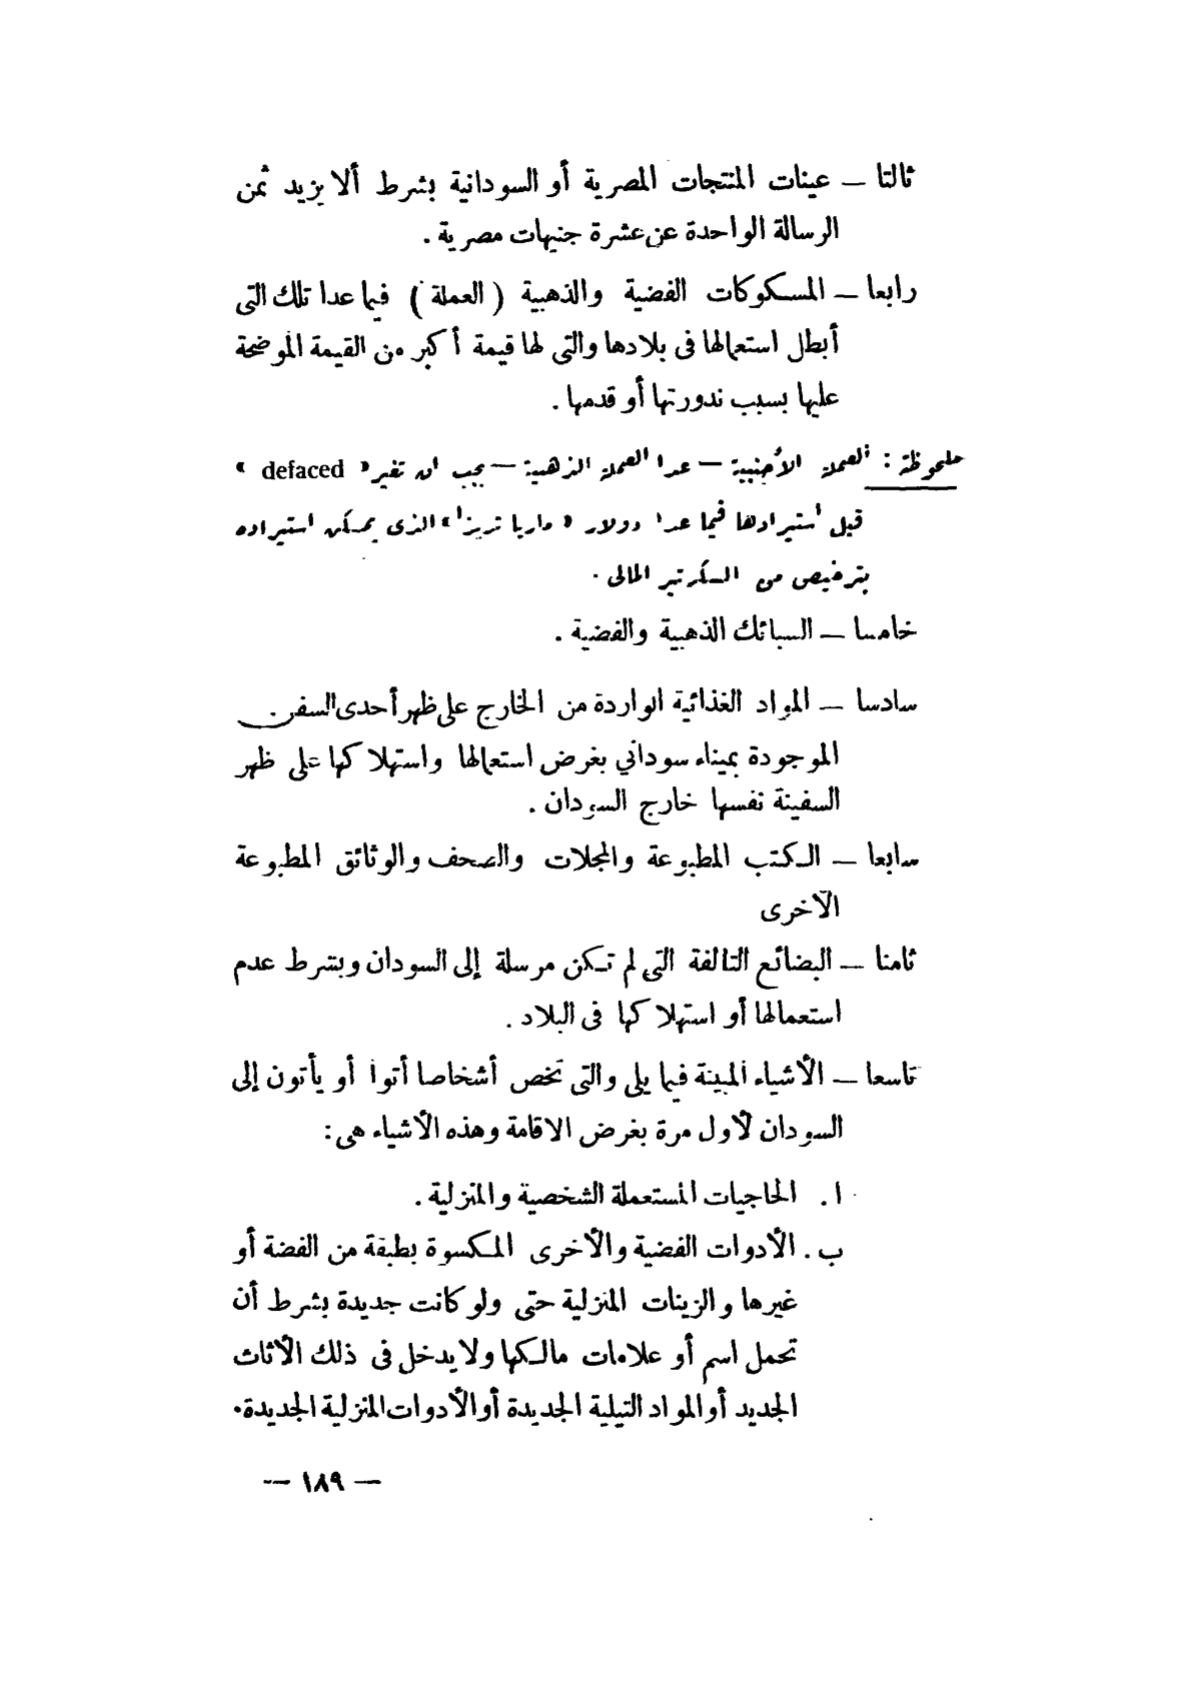 ثالثا — عينات المنتجات المصرية أو السودانية بشرط ألا يزيد ثمن
الرسالة الواحدة عن عشرة جنيهات مصرية .
رابعا — المسكوكات الفضية والذهبية ( العملة ) فيما عدا تلك التى
أبطل استعمالها فى بلادها والتى لها قيمة أكبر من القيمة الموضحة
عليها بسبب ندورتها أو قدمها .
ملحوظة : العملة الأجنبية — عدا العملة الذهبية — يجب ان تغير « defaced »
قبل استيرادها فيما عدا دولار « ماريا تريزا » الذى يمكن استيراده
بترخيص من السكرتير المالى .
خامسا — السبائك الذهبية والفضية .
سادسا — المواد الغذائية الواردة من الخارج على ظهر أحدى السفن
الموجودة بميناء سوداني بغرض استعمالها واستهلاكها على ظهر
السفينة نفسها خارج السودان .
سابعا — الكتب المطبوعة والمجلات والصحف والوثائق المطبوعة
الآخرى
ثامنا — البضائع التالفة التى لم تكن مرسلة إلى السودان وبشرط عدم
استعمالها أو استهلاكها فى البلاد .
تاسعا — الأشياء المبينة فيما يلى والتى تخص أشخاصا أتوا أو يأتون إلى
السودان لأول مرة بغرض الاقامة وهذه الأشياء هى :
ا . الحاجيات المستعملة الشخصية والمنزلية .
ب . الأدوات الفضية والأخرى المكسوة بطبقة من الفضة أو
غيرها والزينات المنزلية حتى ولو كانت جديدة بشرط أن
تحمل اسم أو علامات مالكها ولا يدخل فى ذلك الأثاث
الجديد أو المواد التيلية الجديدة أو الأدوات المنزلية الجديدة .
— ١٨٩ —